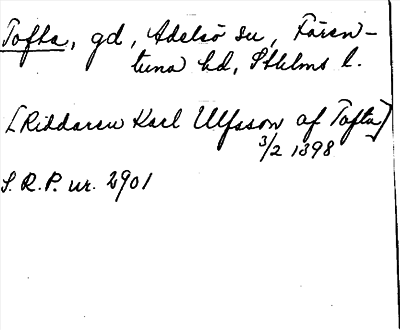 Tofta, gd, Adelsö sn, Fären-
tuna hd, Sthlms l.
[Riddaren Karl Ulfsson af Tofta]
3/2 1398
S.R.P. nr. 2901